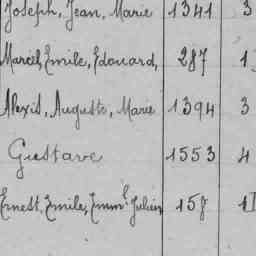 Joseph, Jean, Marie 1341 3
Marcel, Emile, Edouard, 287 1
Alexis, Auguste, Marie 1394 3
Gustave 1553 4
Ernest, Emile, Emm.l Julien 157 1